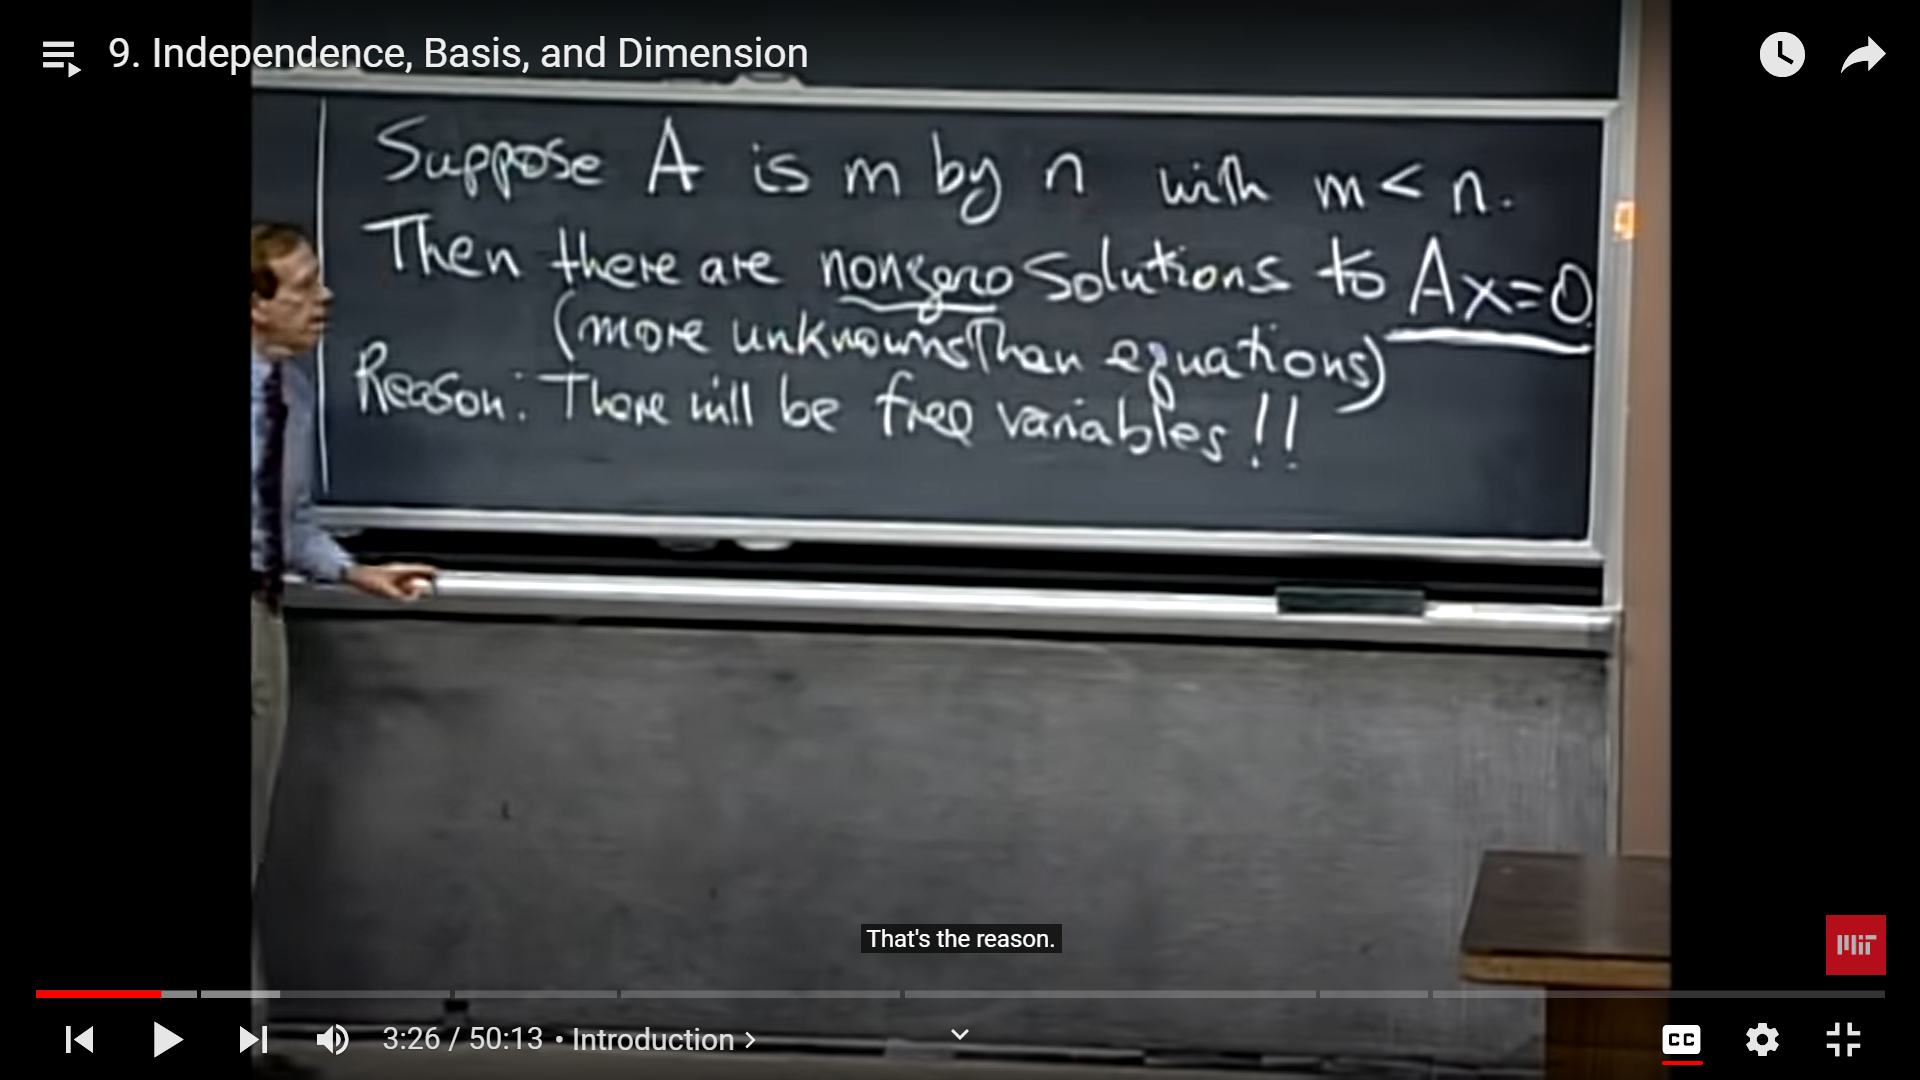 9. Independence, Basis, and Dimension
Suppose A is m by n with m < n.
Then there are nonzero solutions to Ax=0
(more unknowns than equations)
Reason: There will be free variables!!
That's the reason.
MIT
3:26 / 50:13 • Introduction >
CC